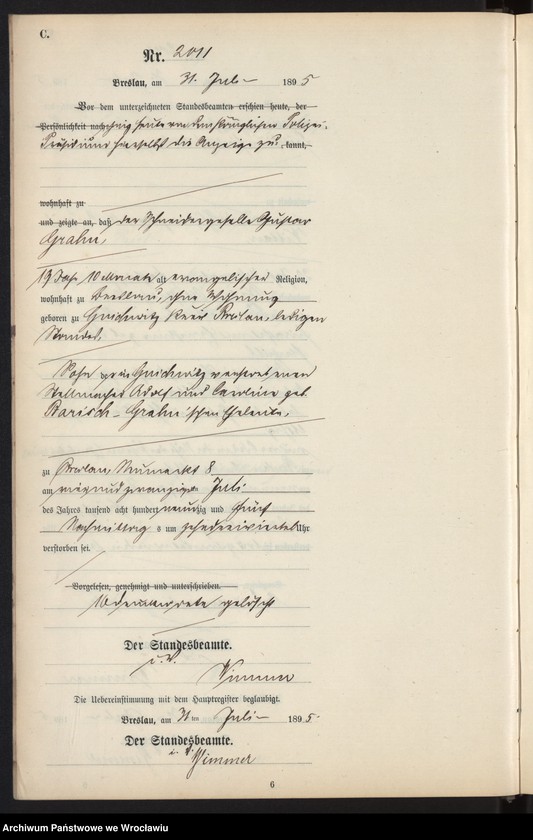 C.
Nr. 2011
Breslau, am 31. Juli 1895
Vor dem unterzeichneten Standesbeamten erschien heute, der
Persönlichkeit nach ging heute von dem Königlichen Polizei-
Präsidium hierselbst die Anzeige zu kannt,
wohnhaft zu
und zeigte an, daß der Schneidergeselle Gustav
Grahn,
19 Jahr 10 Monate alt evangelischer Religion,
wohnhaft zu Breslau, ohne Wohnung
geboren zu Gnichwitz Kreis Breslau, ledigen
Standes,
Sohn zu Gnichwitz verstorbenen
Stellmacher Adolf und Caroline geb.
Barisch-Grahn'schen Eheleute,
zu Breslau, Neumarkt 8
am vierundzwanzigsten Juli
des Jahres tausend acht hundert neunzig und fünf
Nachmittags um Uhr
verstorben sei.
Vorgelesen, genehmigt und unterschrieben.
16 Druckworte gelöscht
Der Standesbeamte.
i. V.
Wimmer
Die Uebereinstimmung mit dem Hauptregister beglaubigt.
Breslau, am 31ten Juli 1895
Der Standesbeamte.
i. V. Wimmer
6
Archiwum Państwowe we Wrocławiu